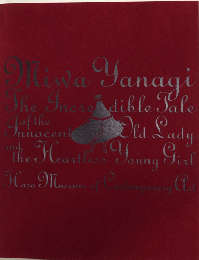 Miwa Yanagi
The Incredible Tale
of the
Innocent Old Lady
and
the Heartless Young Girl
Hara Museum of Contemporary Art